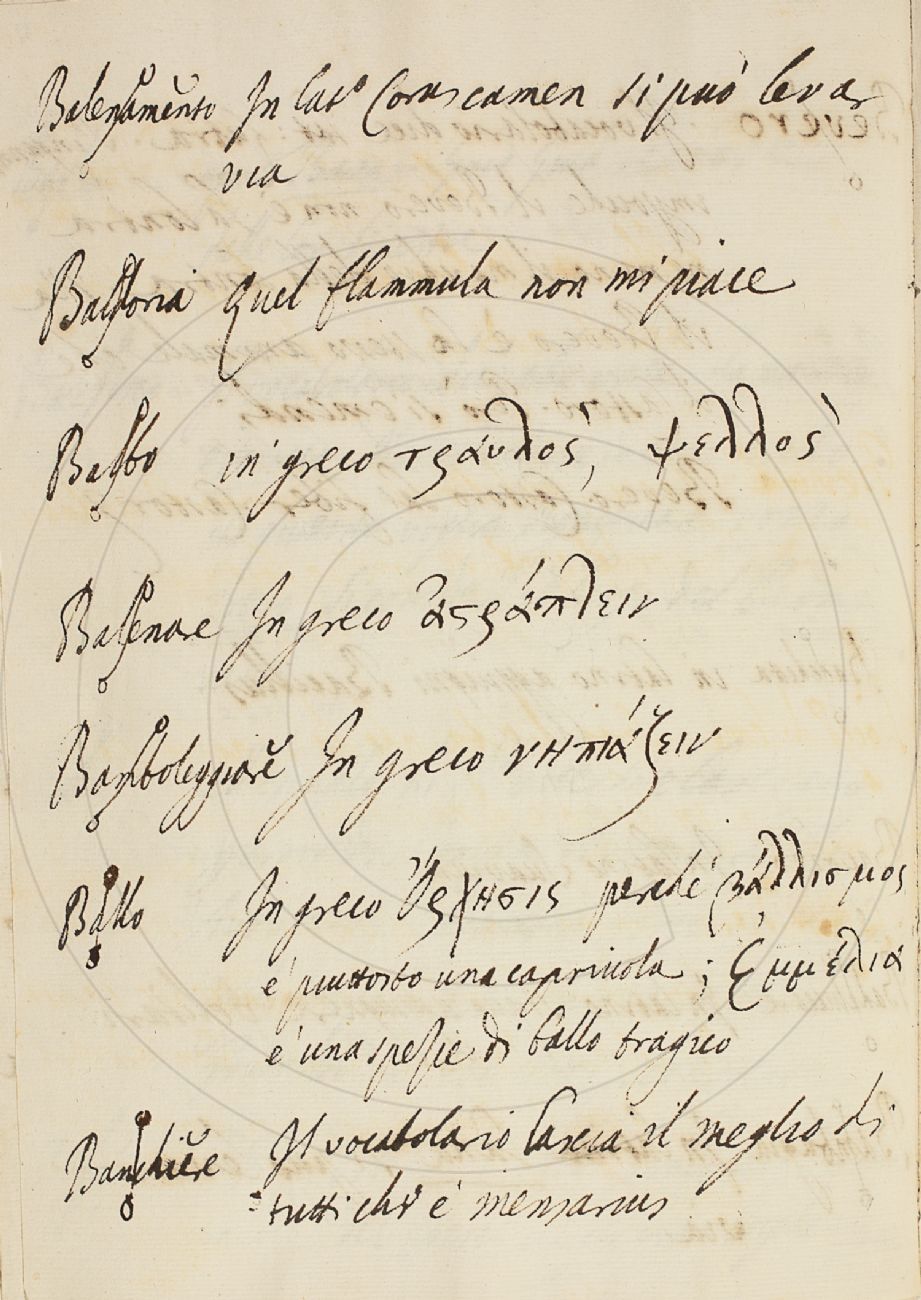 Balenamento In lat.o Coruscamen si può levar
via
Baldoria Quel flammula non mi piace
Balbo in greco τραυλὸς, ψελλὸς
Balenare In greco ἀστράπλειν
Bamboleggiare In greco νηπιάζειν
Ballo In greco Ὄρχησις perche βάλλισμος
è piuttosto una capriuola; Ἐμμέλια
è una spezie di ballo tragico
Banchiere Il vocabolario lascia il meglio di
tutti che è mensarius